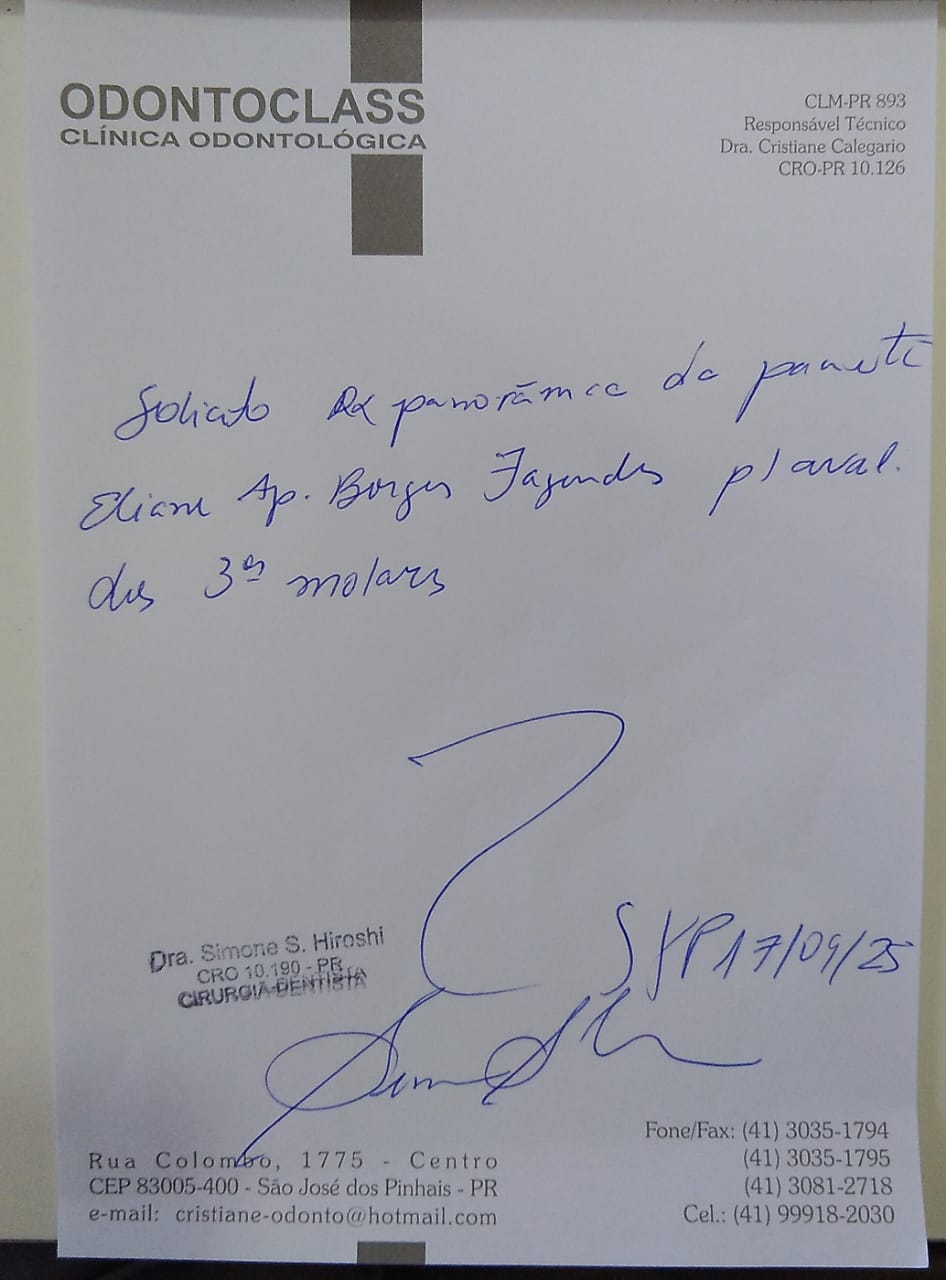 ODONTOCLASS
CLÍNICA ODONTOLÓGICA
CLM-PR 893
Responsável Técnico
Dra. Cristiane Calegario
CRO-PR 10.126
Solicito RX panorâmica da paciente
Eliane Ap. Borges Fagundes p/ aval.
dos 3ºs molares
Dra. Simone S. Hiroshi
CRO 10.190 - PR
CIRURGIÃ-DENTISTA
SJP 17/09/25
Rua Colombo, 1775 - Centro
CEP 83005-400 - São José dos Pinhais - PR
e-mail: cristiane-odonto@hotmail.com
Fone/Fax: (41) 3035-1794
(41) 3035-1795
(41) 3081-2718
Cel.: (41) 99918-2030